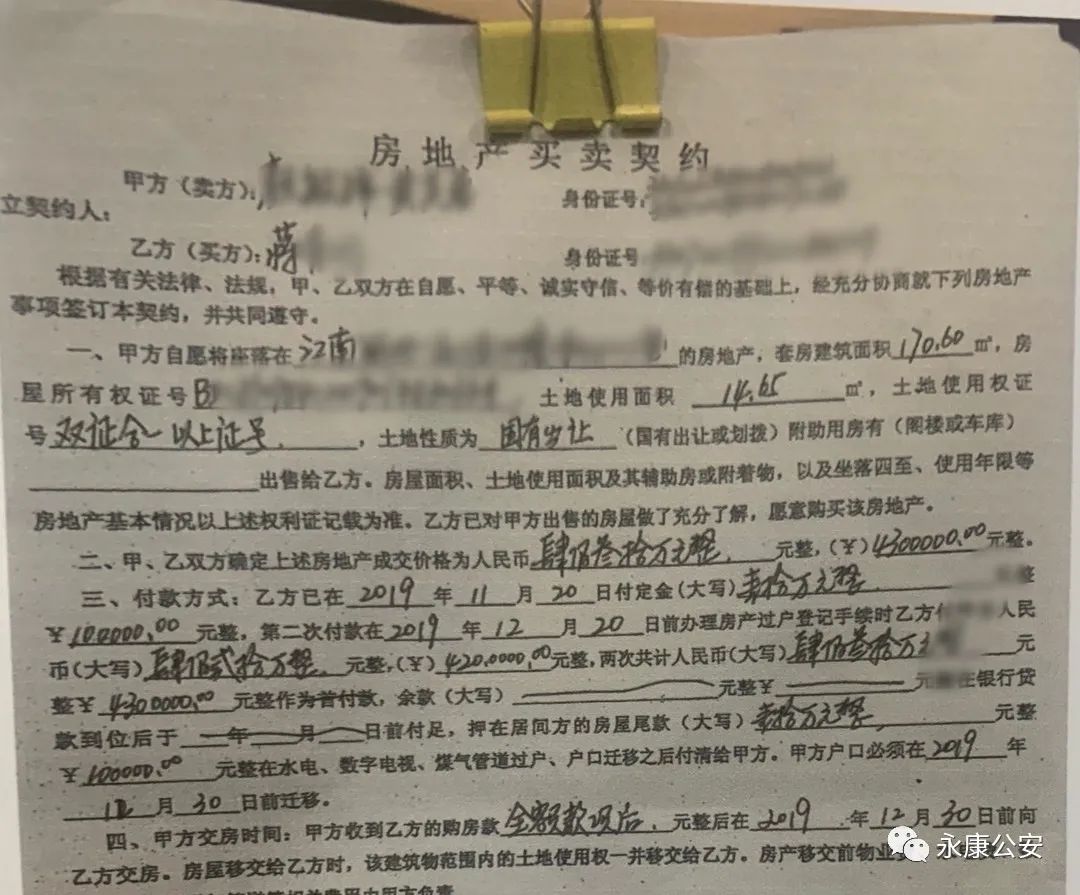 房地产买卖契约
甲方（卖方）： 身份证号：
立契约人：
乙方（买方）：蒋 身份证号
根据有关法律、法规，甲、乙双方在自愿、平等、诚实守信、等价有偿的基础上，经充分协商就下列房地产
事项签订本契约，并共同遵守。
一、甲方自愿将座落在江南 的房地产，套房建筑面积170.60㎡，房
屋所有权证号B 土地使用面积 14.65 ㎡，土地使用权证
号双证合一以上证号，土地性质为国有出让（国有出让或划拨）附助用房有（阁楼或车库）
出售给乙方。房屋面积、土地使用面积及其辅助房或附着物，以及坐落四至、使用年限等
房地产基本情况以上述权利证记载为准。乙方已对甲方出售的房屋做了充分了解，愿意购买该房地产。
二、甲、乙双方确定上述房地产成交价格为人民币肆佰叁拾万元整 元整，（￥）4300000.00元整。
三、付款方式：乙方已在2019年11月20日付定金（大写）壹拾万元整 整
￥100000.00元整，第二次付款在2019年12月20日前办理房产过户登记手续时乙方付 人民
币（大写）肆佰贰拾万整 元整，（￥）4200000.00元整，两次共计人民币（大写）肆佰叁拾万元 元
整￥4300000.00元整作为首付款，余款（大写） 元整￥ 元 在银行贷
款到位后于 年 月 日前付足，押在居间方的房屋尾款（大写）壹拾万元整 元整
￥100000.00元整在水电、数字电视、煤气管道过户、户口迁移之后付清给甲方。甲方户口必须在2019年
12月30日前迁移。
四、甲方交房时间：甲方收到乙方的购房款全额款项后元整后在2019年12月30日前向
乙方交房。房屋移交给乙方时，该建筑物范围内的土地使用权一并移交给乙方。房产移交前物业
费用由甲方负责
永康公安